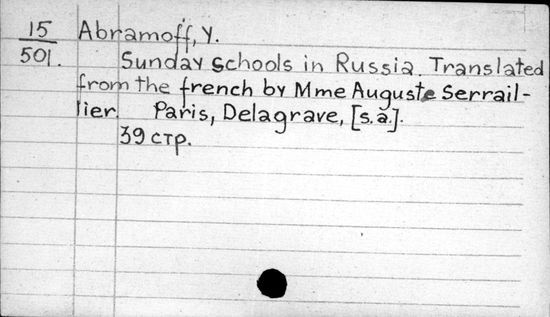 15 Abramoff, Y.
501. Sunday schools in Russia. Translated
from the french by Mme Auguste Serrail-
lier. Paris, Delagrave, [s.a.].
39 стр.